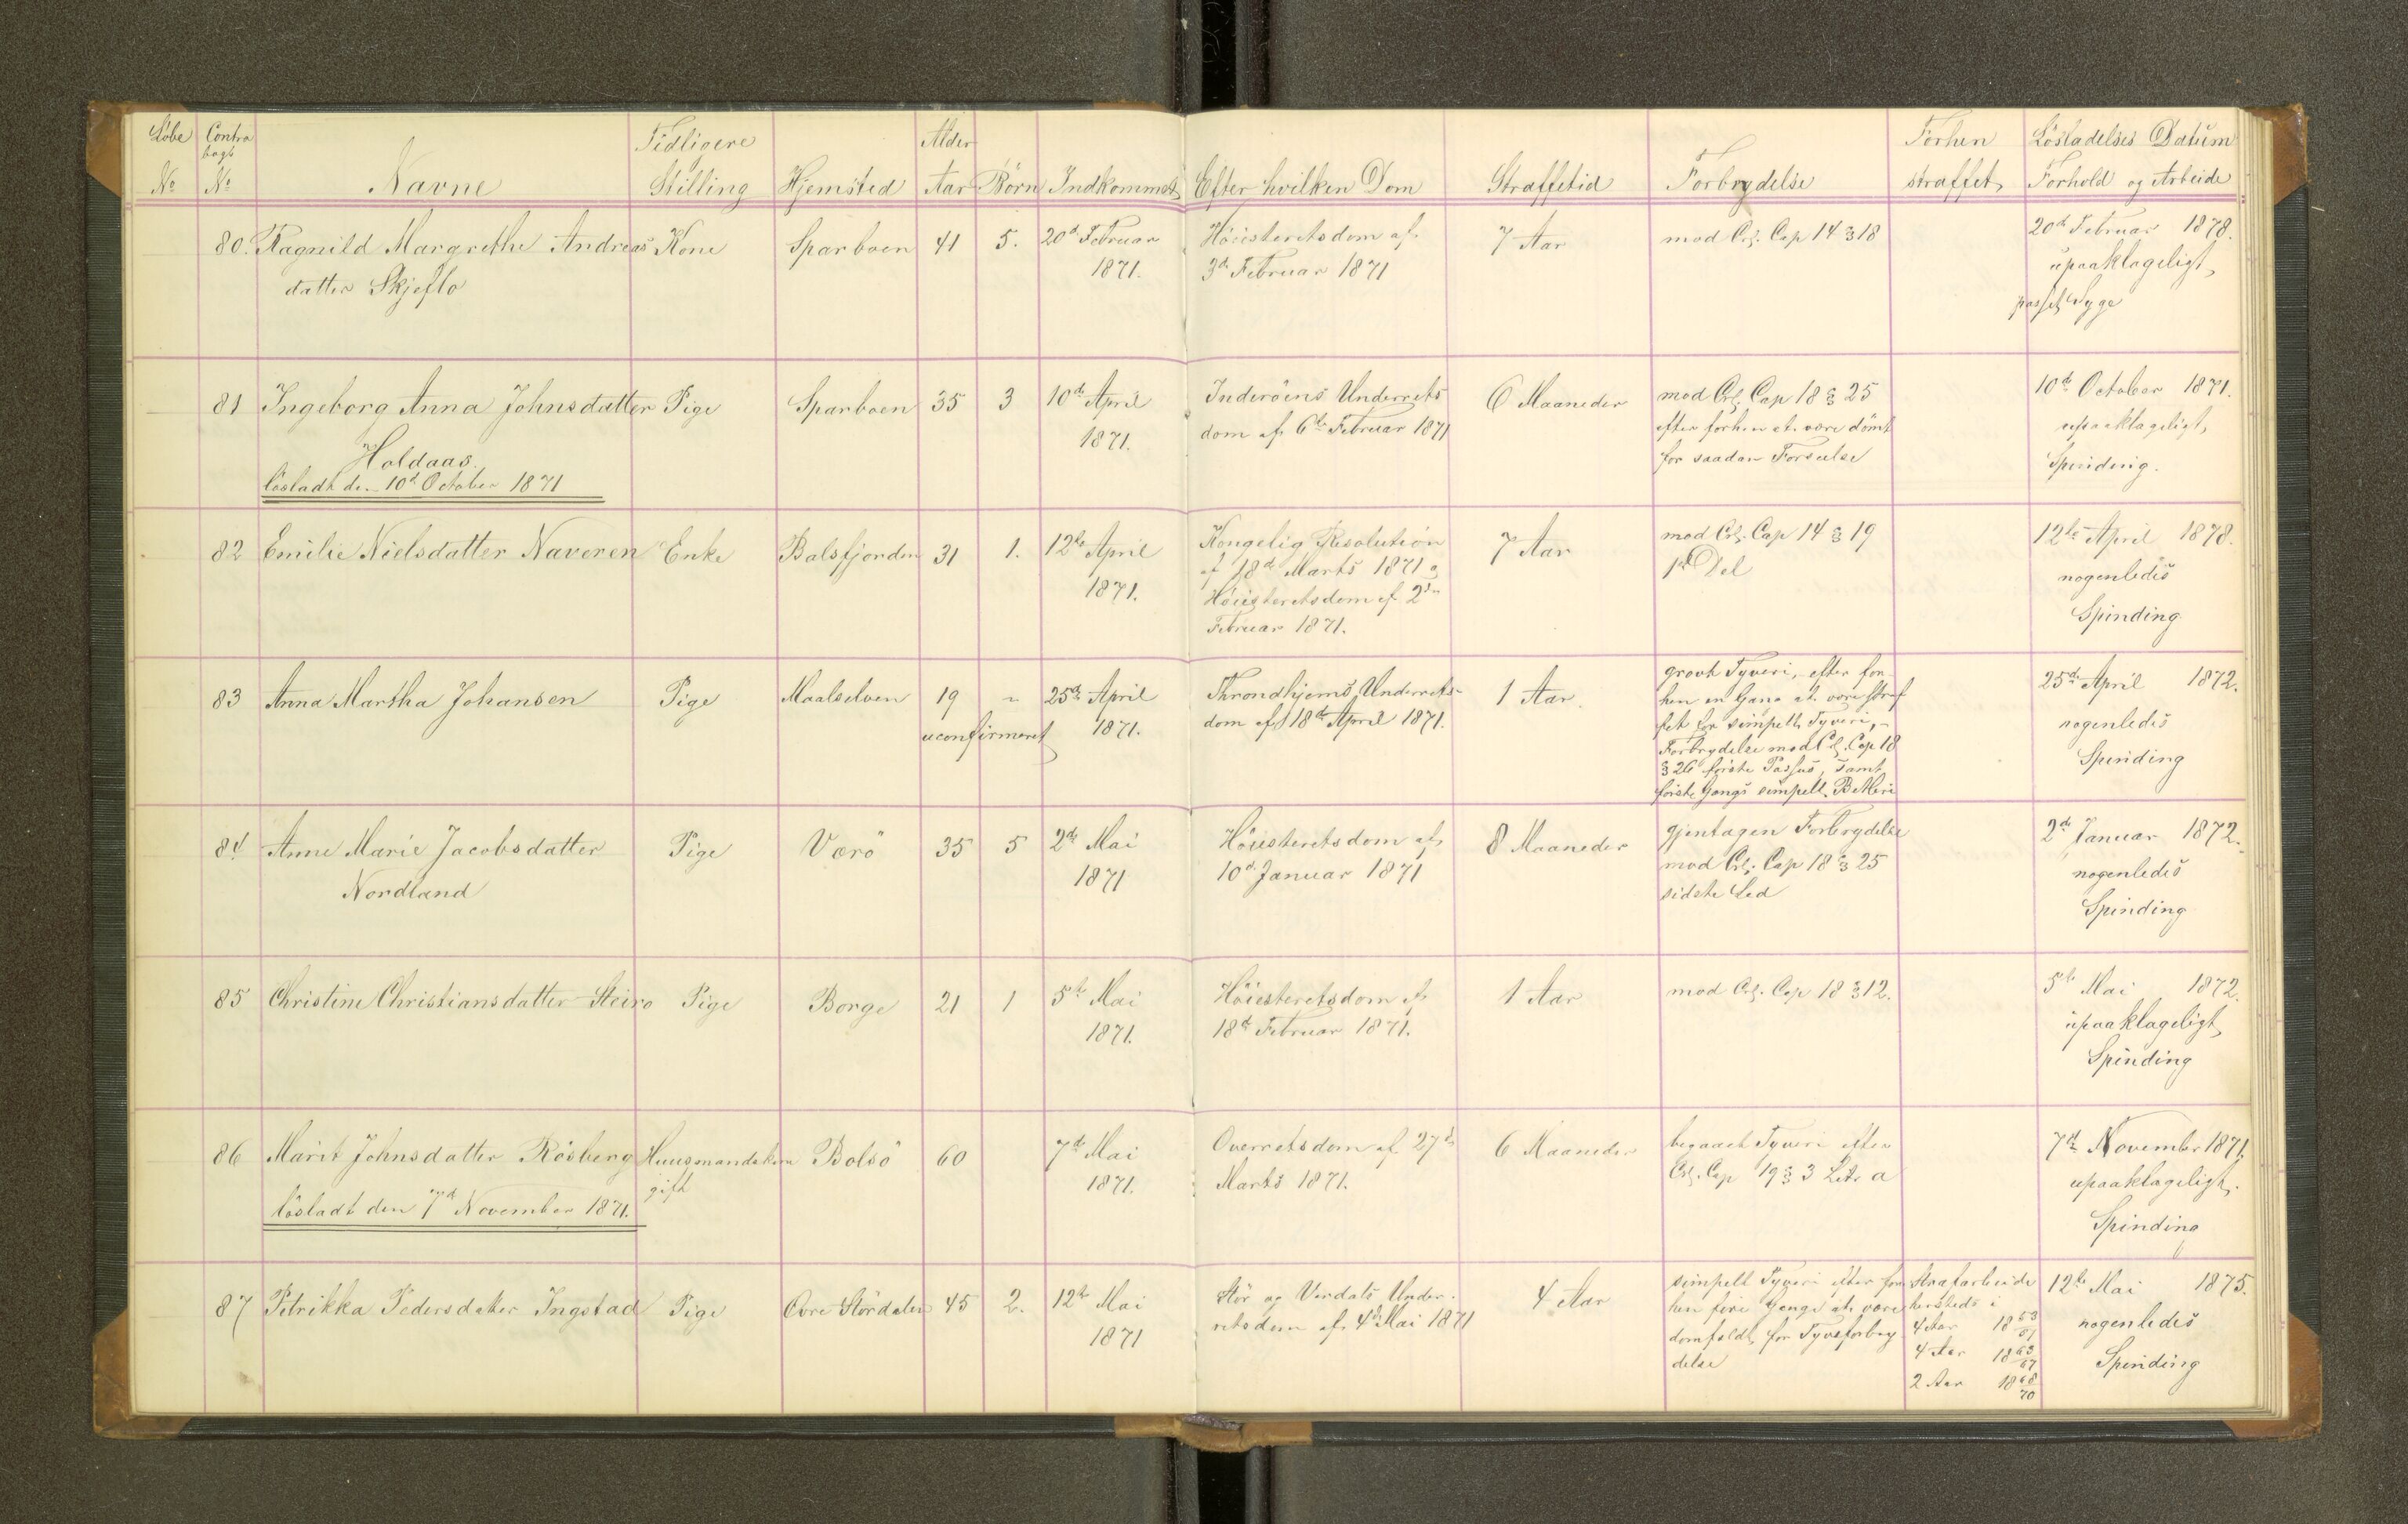 Löbe Contra Tidligere Alder Forhen Lösladelses Datum
bogs
No No Navne Stilling Hjemsted Aar Börn Indkommet Efter hvilken Dom Straffetid Forbrydelse straffet Forhold og Arbeide
80. Ragnild Margrethe Andreas Kone Sparboen 41 5. 20de Februar Höiesteretsdom af 7 Aar mod Crl. Cap 14 § 18 20de Februar 1878.
datter Skjeflo 1871. 3de Februar 1871 upaaklageligt,
passet Syge
81 Ingeborg Anna Johnsdatter Pige Sparboen 35 3 10de April Inderöens Underrets 6 Maaneder mod Crl. Cap 18 § 25 10de October 1871.
Holdaas. 1871. dom af 6te Februar 1871 efter forhen at være dömt upaaklageligt,
lösladt den 10de October 1871 for saadan Forseelse Spinding.
82 Emilie Nielsdatter Naveren Enke Balsfjorden 31 1. 12te April Kongelig Resolution 7 Aar mod Crl. Cap 14 § 19 12te April 1878.
1871. af 18de Marts 1871 & 1ste Del nogenledes
Höiesteretsdom af 2den Spinding
Februar 1871.
83 Anna Martha Johansen Pige Maalselven 19 - 25de April Throndhjems Underrets- 1 Aar. grovt Tyveri, efter for- 25de April 1872.
uconfirmeret 1871. dom af 18de April 1871. hen en Gang at være straf nogenledes
fet for simpelt Tyveri, - Spinding
Forbrydelse mod Crl. Cap 18
§ 26 förste Passus, samt
förste Gangs simpelt Betleri
84 Anne Marie Jacobsdatter Pige Værö 35 5 2de Mai Höiesteretsdom af 8 Maaneder gjentagen Forbrydelse 2de Januar 1872.
Nordland 1871 10de Januar 1871 mod Crl. Cap 18 § 25 nogenledes
sidste Led Spinding
85 Christine Christiansdatter Steiro Pige Borge 21 1 5te Mai Höiesteretsdom af 1 Aar mod Crl. Cap 18 § 12. 5te Mai 1872.
1871. 18de Februar 1871. upaaklageligt,
Spinding
86 Marit Johnsdatter Rösberg Huusmandskone Bolsö 60 7de Mai Overretsdom af 27de 6 Maaneder begaaet Tyveri efter 7de November 1871.
gift 1871. Marts 1871. Crl. Cap 19 § 3 Litr a upaaklageligt.
lösladt den 7de November 1871. Spinding
87 Petrikka Pedersdatter Ingstad Pige Övre Stördalen 45 2. 12te Mai Stör og Værdals Under- 4 Aar simpelt Tyveri efter for Strafarbeide 12te Mai 1875.
1871 retsdom af 4de Mai 1871 hen fire Gange at være hersteds i nogenledes
domfeldt for Tyvsforbry 4 Aar 18 53/57 Spinding
delse 4 Aar 18 63/67
2 Aar 18 68/70